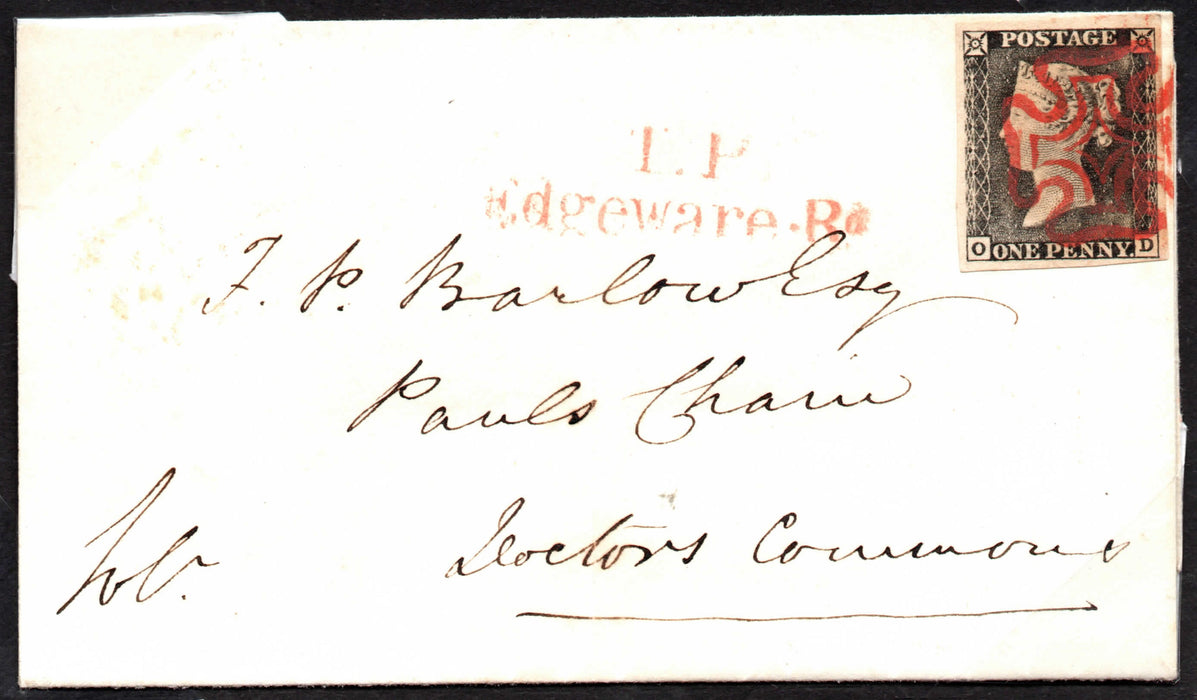 POSTAGE
T.P
Edgeware.Rd
O ONE PENNY. D
F. P. Barlow Esq
Pauls Chain
Doctors Commons